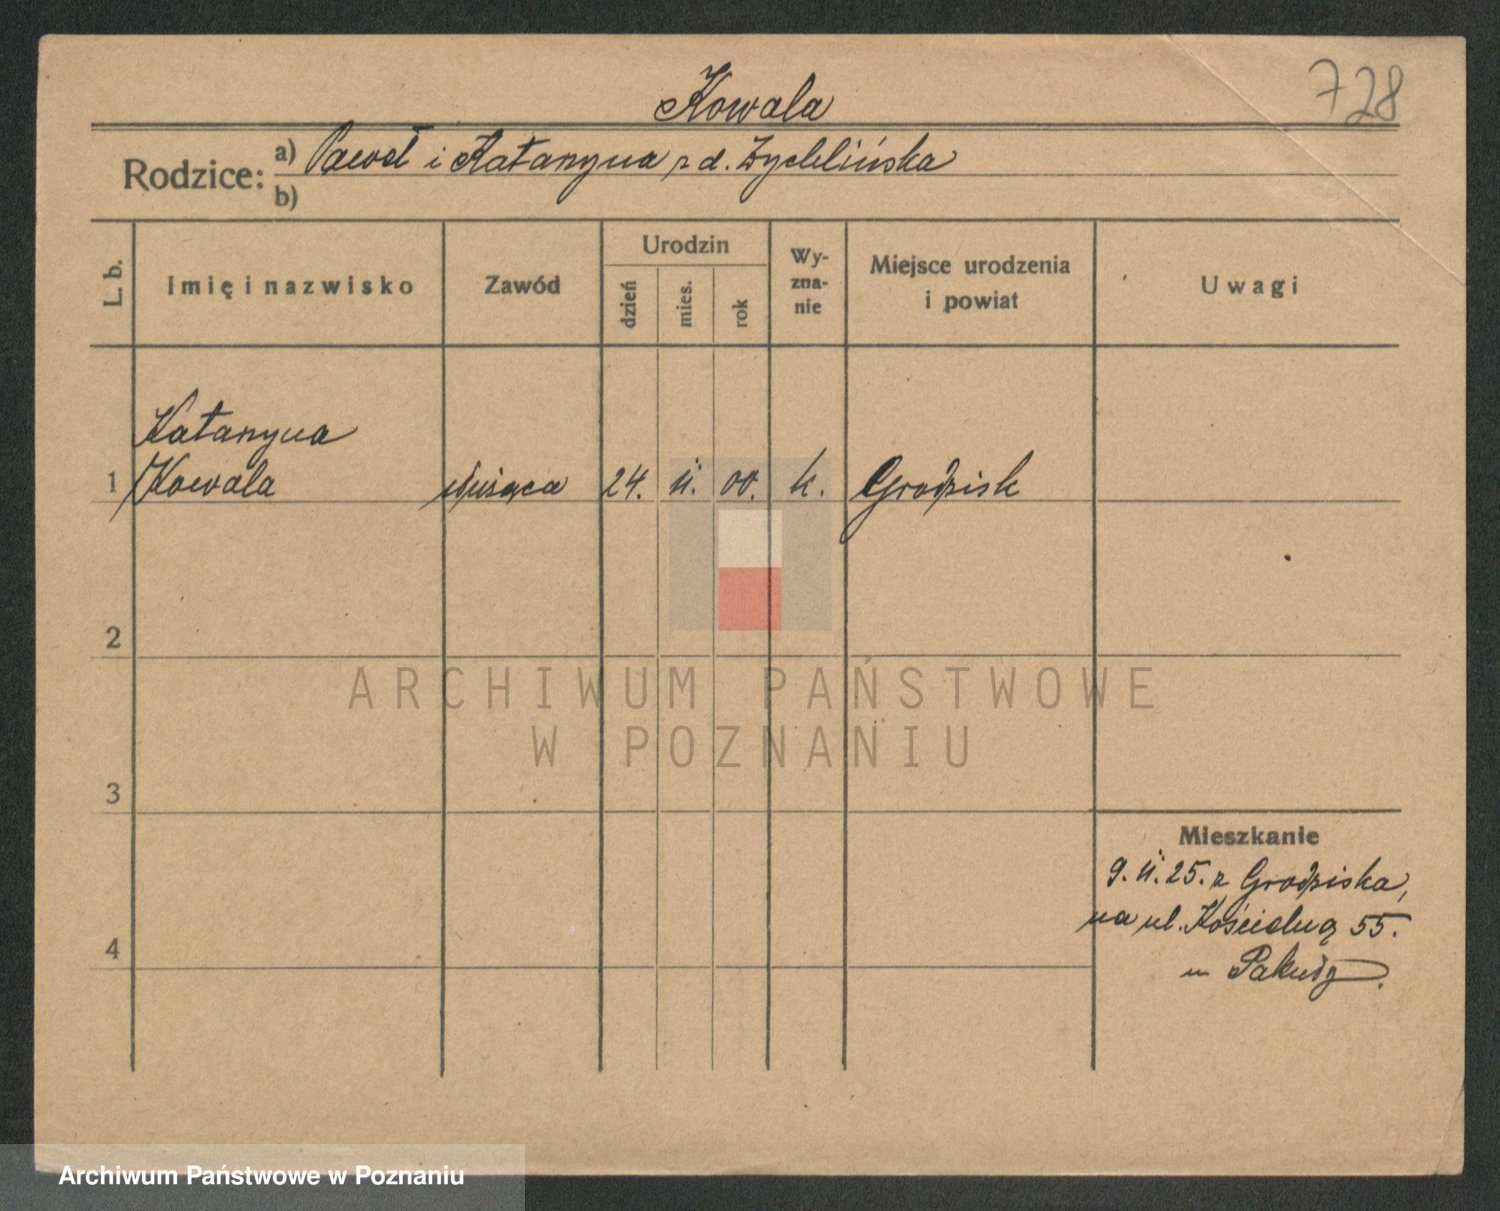 Kowala
728
Rodzice: a) Paweł i Katarzyna z d. Zychlińska
b)
L. b.
Imię i nazwisko
Zawód
Urodzin
dzień
mies.
rok
Wy-
zna-
nie
Miejsce urodzenia
i powiat
Uwagi
Katarzyna
1 Kowala służąca 24. II. 00. k. Grodzisk
2
3
4
Mieszkanie
9. II. 25. z Grodziska,
na ul. Kościelną 55.
ARCHIWUM PAŃSTWOWE
W POZNANIU
Archiwum Państwowe w Poznaniu